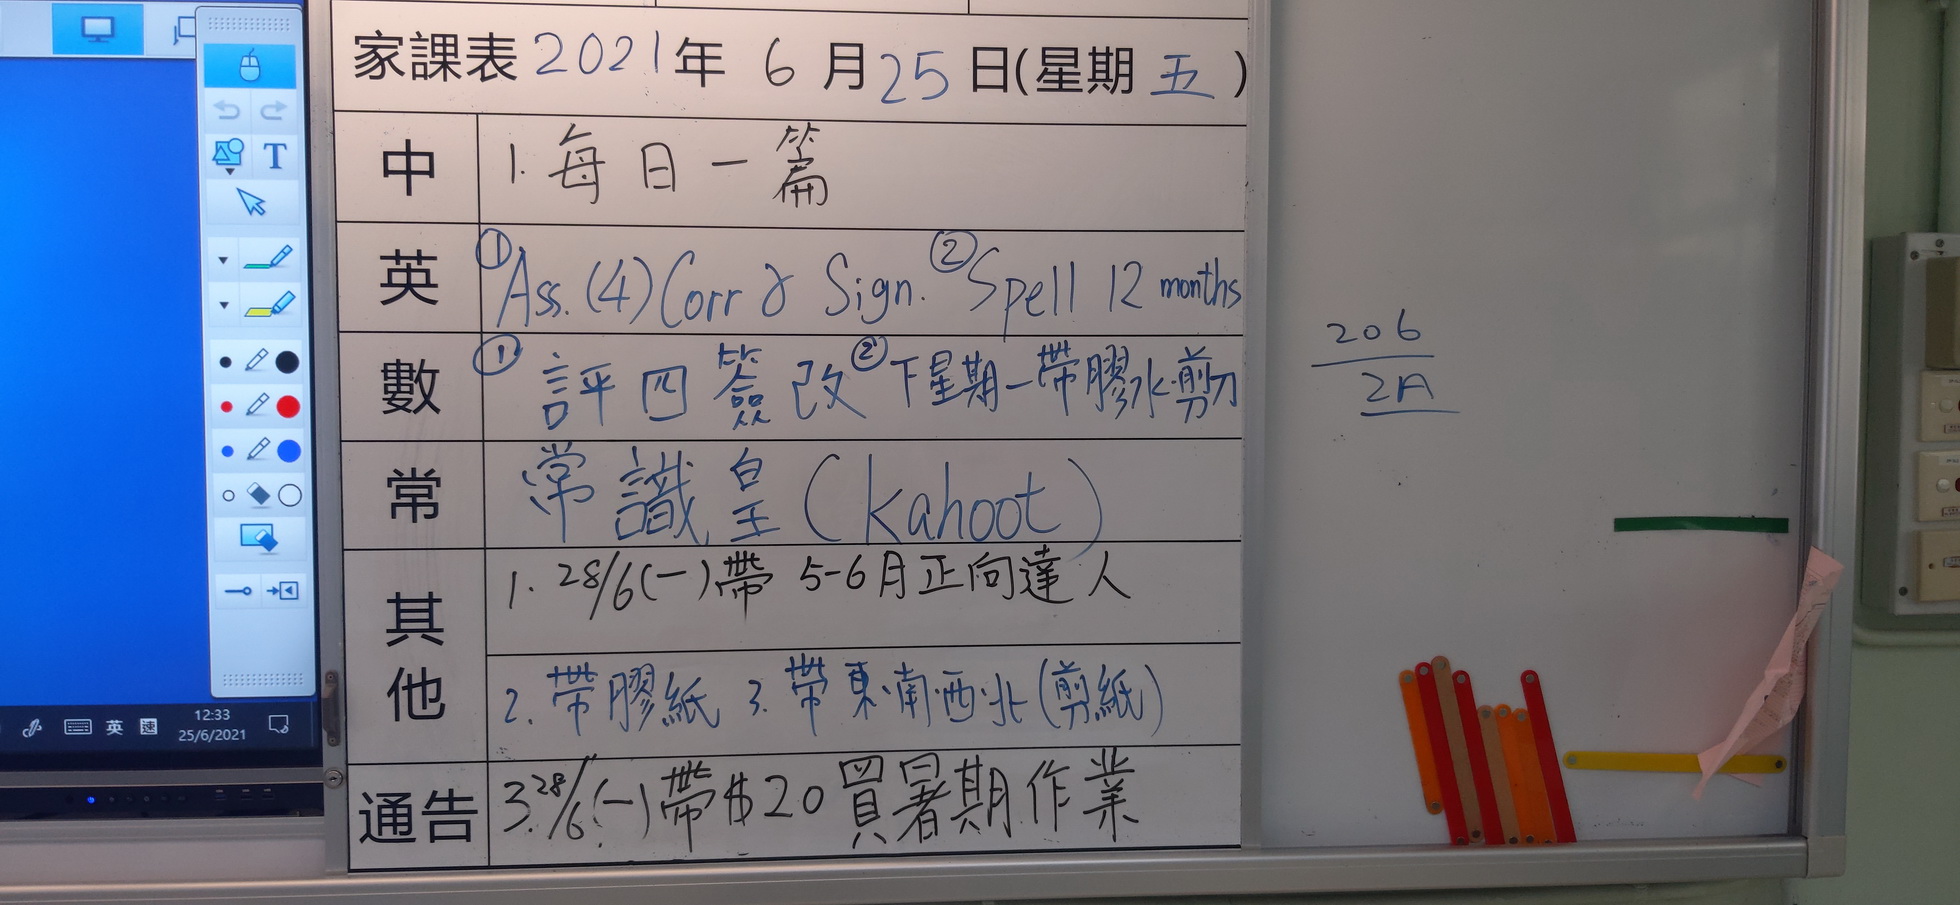 家課表 2021年 6 月 25 日(星期 五 )
中 1. 每日一篇
英 ① Ass. (4) Corr & Sign. ② Spell 12 months
數 ① 評四簽改 ② 下星期一帶膠水、剪刀
常 常識皇 (kahoot)
其他 1. 28/6(一)帶 5-6月正向達人
2. 帶膠紙 3. 帶東南西北(剪紙)
通告 3. 28/6(一)帶$20買暑期作業
206
2A
T
英 速 12:33
25/6/2021